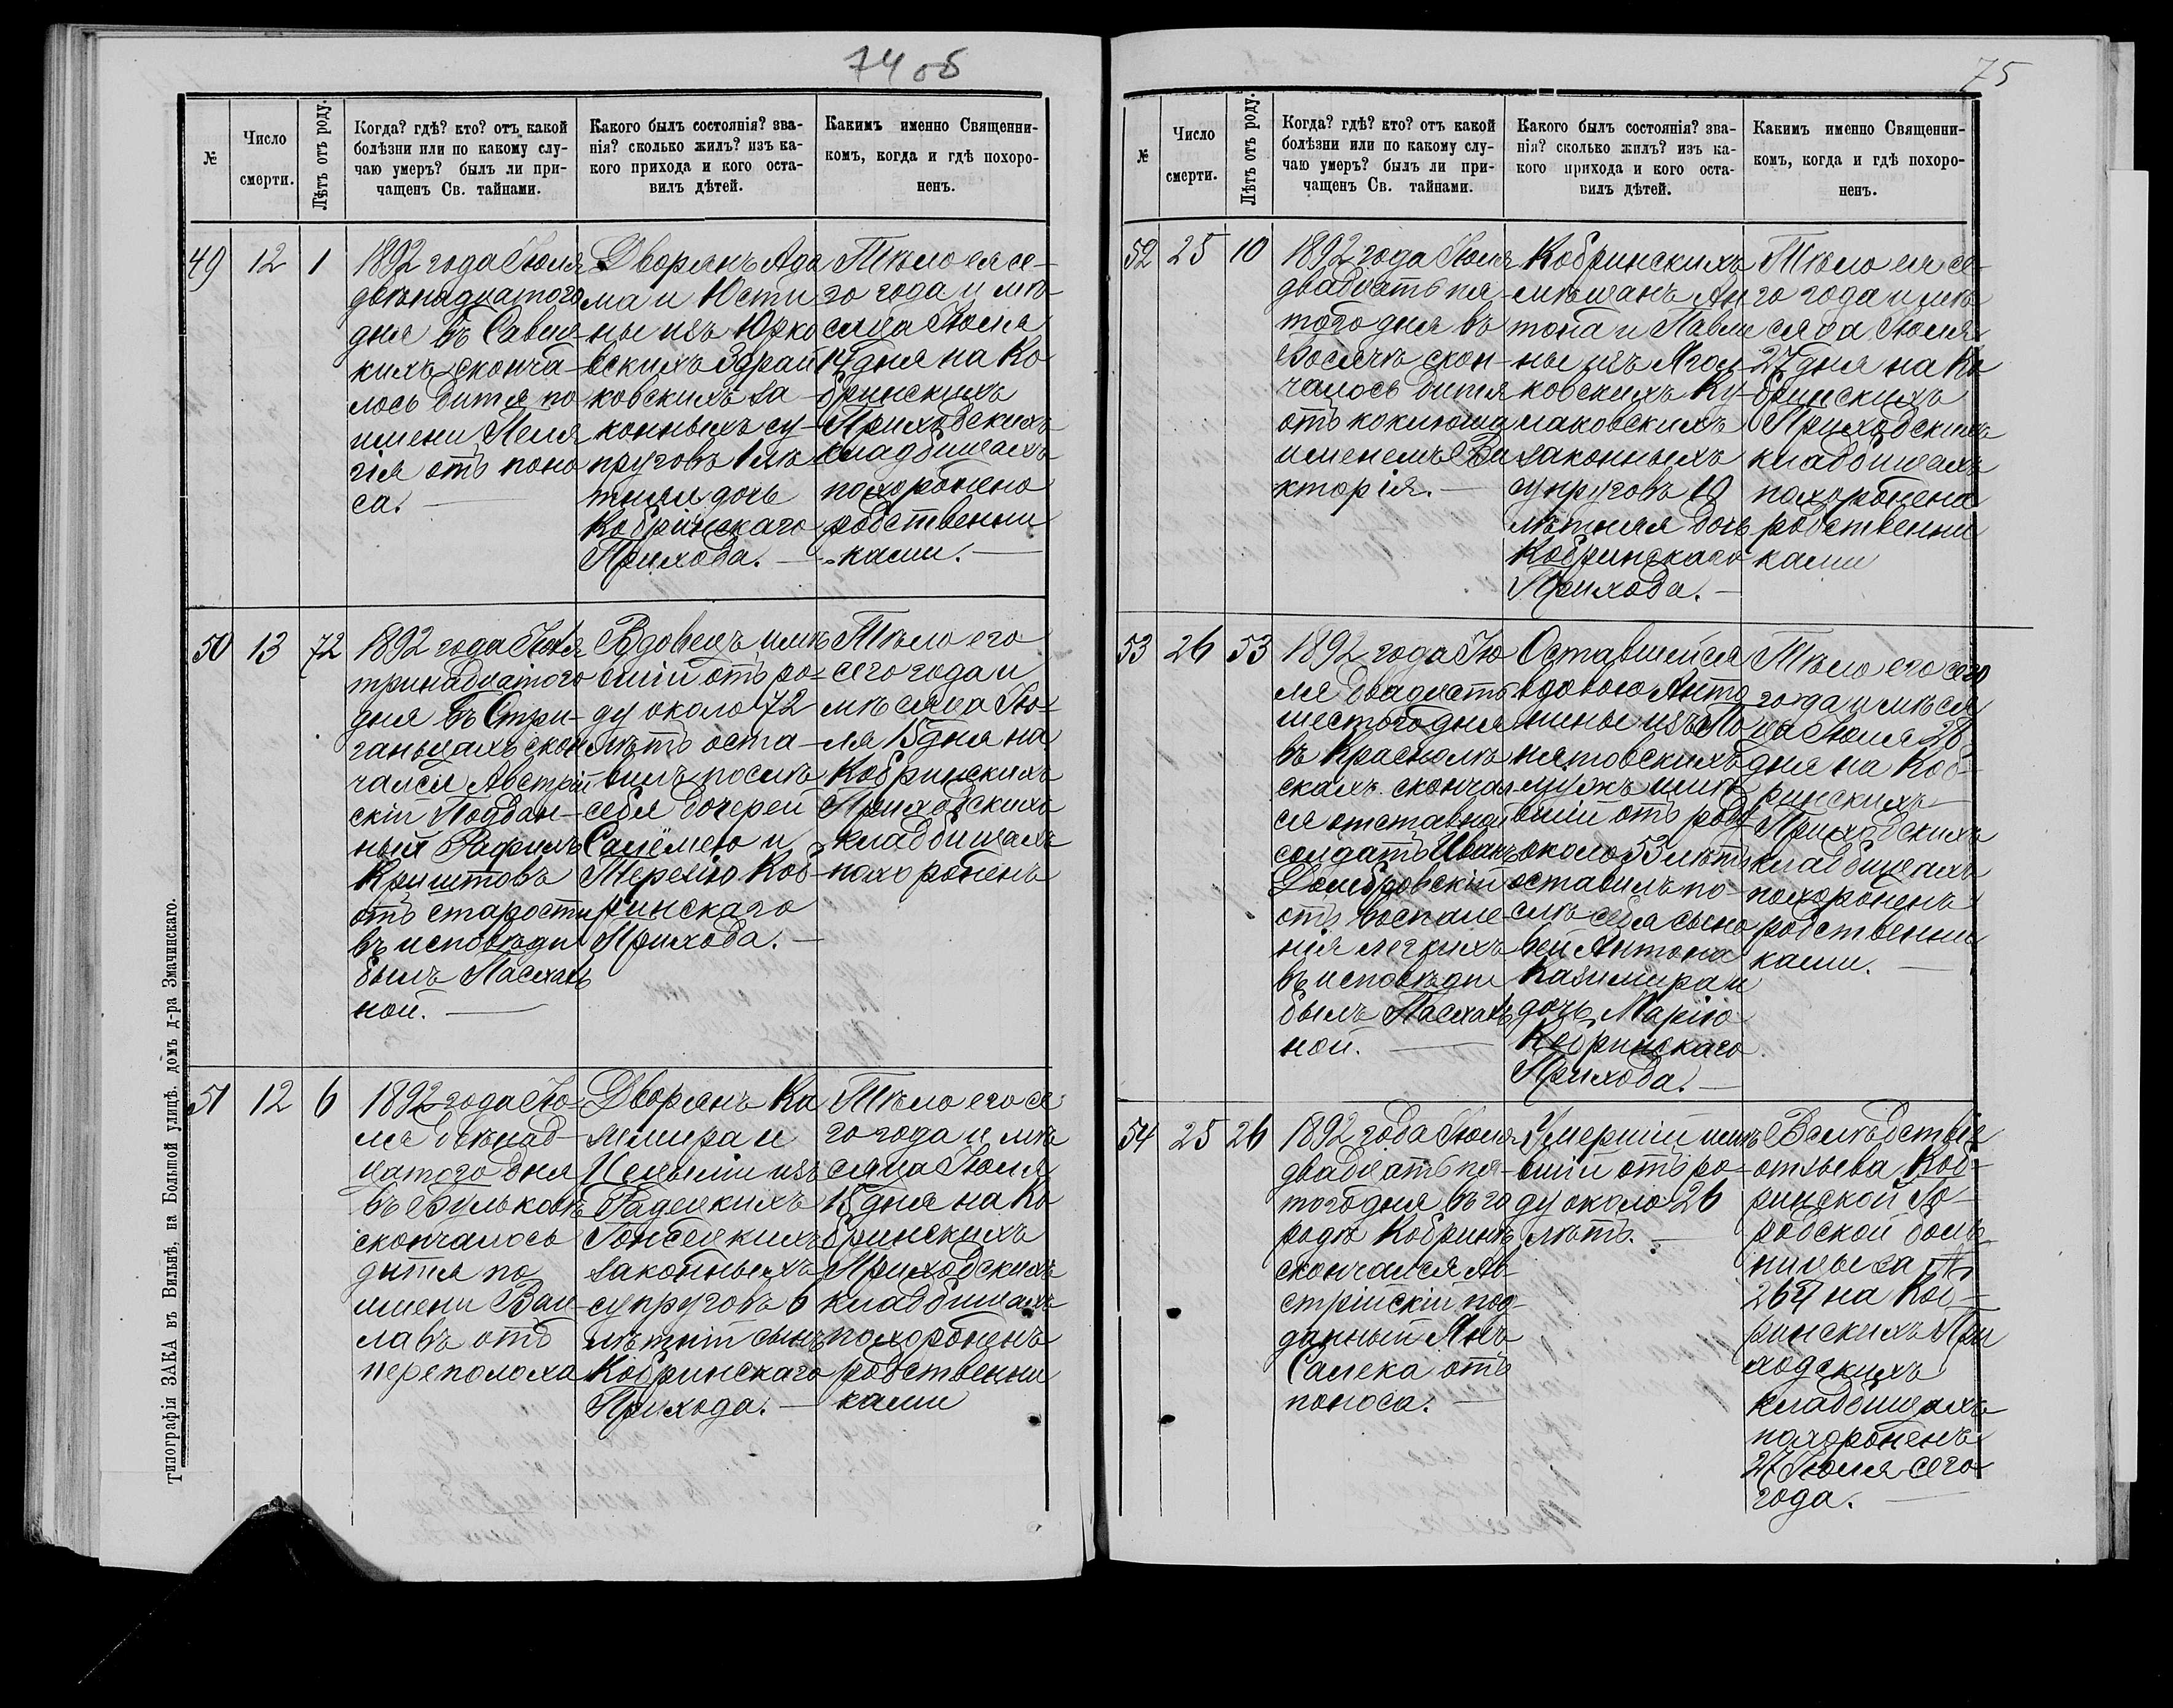 74 об
№
Число
смерти.
Лѣтъ отъ роду.
Когда? гдѣ? кто? отъ какой
болѣзни или по какому слу-
чаю умеръ? былъ ли при-
чащенъ Св. тайнами.
Какого былъ состоянія? зва-
нія? сколько жилъ? изъ ка-
кого прихода и кого оста-
вилъ дѣтей.
Какимъ именно Священни-
комъ, когда и гдѣ похоро-
ненъ.
49
12
1
1892 года Іюля
двѣнадцатого
дня въ Савиц-
кихъ сконча-
лось дитя по
имени Пеля
гія отъ поно
са.
Дворянъ Ада
ма и Юсти
ны изъ Юрко
вскихъ Здрай
ковскихъ за-
конныхъ су-
пруговъ 1 лѣ
тняя дочь
Кобринскаго
Прихода.
Тѣло ея се-
го года и мѣ-
сяца Іюля
14 дня на Ко
бринскихъ
Приходскихъ
кладбищахъ
похоронено
родственни
ками.
50
13
72
1892 года Іюля
тринадцатого
дня въ Стри-
ганьцахъ скон
чался Австрій
скій Поддан-
ный Рафилъ
Криштовъ
отъ старости
въ исповѣди
былъ Пасхаль
ной.
Вдовецъ имѣ
вшій отъ ро-
ду около 72
лѣтъ оста-
вилъ послѣ
себя дочерей
Саломею и
Терезію Коб-
ринскаго
Прихода.
Тѣло его
сего года и
мѣсяца Ію-
ля 15 дня на
Кобринскихъ
Приходскихъ
кладбищахъ
похороненъ
51
12
6
1892 года Ію-
ля двѣнад-
цатого дня
въ Вульковѣ
скончалось
дитя по
имени Вац-
лавъ отъ
переполоха
Дворянъ Ка
зимира и
изъ
Радецкихъ
законныхъ
супруговъ 6
лѣтній сынъ
Кобринскаго
Прихода.
Тѣло его се-
го года и мѣ
сяца Іюля
15 дня на Ко
бринскихъ
Приходскихъ
кладбищахъ
похороненъ
родственни
ками
Типографія ЗАКА въ Вильнѣ, на Большой улицѣ, домъ д-ра Змачинскаго.
75
№
Число
смерти.
Лѣтъ отъ роду.
Когда? гдѣ? кто? отъ какой
болѣзни или по какому слу-
чаю умеръ? былъ ли при-
чащенъ Св. тайнами.
Какого былъ состоянія? зва-
нія? сколько жилъ? изъ ка-
кого прихода и кого оста-
вилъ дѣтей.
Какимъ именно Священни-
комъ, когда и гдѣ похоро-
ненъ.
52
25
10
1892 года Іюля
двадцать пя-
того дня въ
скон-
чалось дитя
отъ коклюша
именемъ Ви
кторія.
Кобринскихъ
мѣщанъ Ан
тона и Павли
ны изъ Ягол-
ковскихъ Ку-
лаковскихъ
законныхъ
супруговъ 10
лѣтняя дочь
Кобринскаго
Прихода.
Тѣло ея се-
го года и мѣ
сяца Іюля
27 дня на Ко
бринскихъ
Приходскихъ
кладбищахъ
похоронена
родственни
ками
53
26
53
1892 года Ію
ля двадцать
шестого дня
въ
сконча
ся отставной
солдатъ Иванъ
Домбровскій
отъ воспале-
нія легкихъ
въ исповѣди
былъ Пасхаль
ной.
Оставшейся
вдовою Анто
нины изъ По
нятовскихъ
мужъ имѣ
вшій отъ роду
около 53 лѣтъ
оставилъ по-
слѣ себя сыно
вей Антона
Казимира и
дочь Марію
Кобринскаго
Прихода.
Тѣло его сего
года и мѣся
ца Іюля 28
дня на Коб-
ринскихъ
Приходскихъ
кладбищахъ
похороненъ
родственни
ками.
54
25
26
1892 года Іюля
двадцать пя-
того дня въ го
родѣ Кобринѣ
скончался Ав-
стрійскій под-
данный Янъ
Салека отъ
поноса.
Умершій имѣ
вшій отъ ро-
ду около 26
лѣтъ.
Вслѣдствіе
отзыва Коб-
ринской Го-
родской боль
ницы за №
264 на Коб-
ринскихъ При
ходскихъ
кладбищахъ
похороненъ
27 Іюля сего
года.